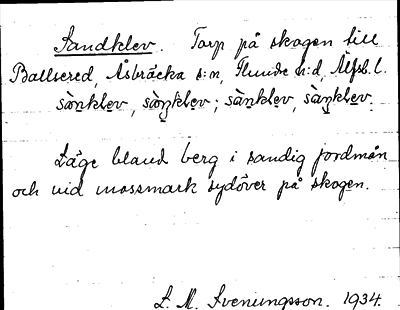 Sandklev. Torp på skogen till
Ballsered, Åsbräcka s:n, Flundre h:d, Älfsb. l.
sànklev, sàŋklev; sànklev, sàŋklev.
Läge bland berg i sandig jordmån
och vid mossmark sydöver på skogen.
L. M. Svenungsson. 1934.